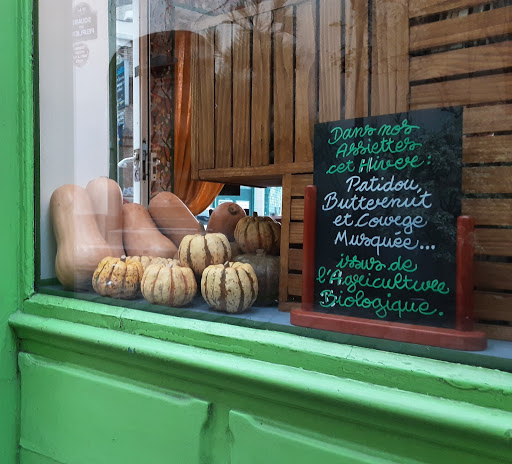 Dans nos
Assiettes
cet Hiver :
Patidou,
Butternut
et Courge
Musquée...
issus de
l'Agriculture
Biologique.